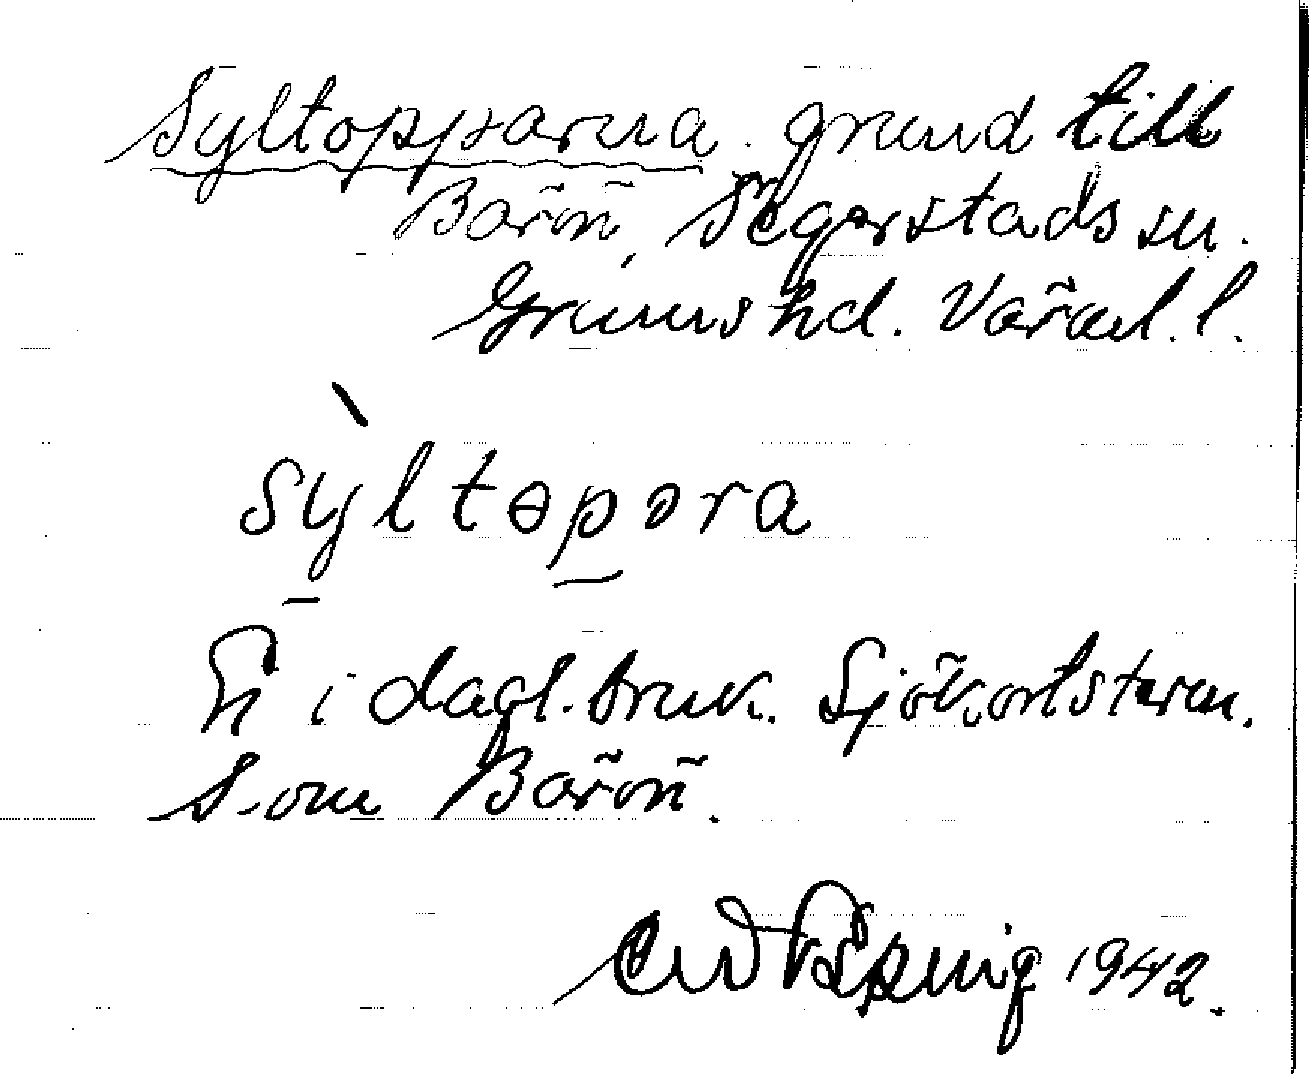 Syltopparna. grund till
Bärön, Segerstads sn.
Grums hd. Värml. l.
syltəpəra
Ej i dagl. bruk. Sjökortsterm.
S. om Bärön.
1942.